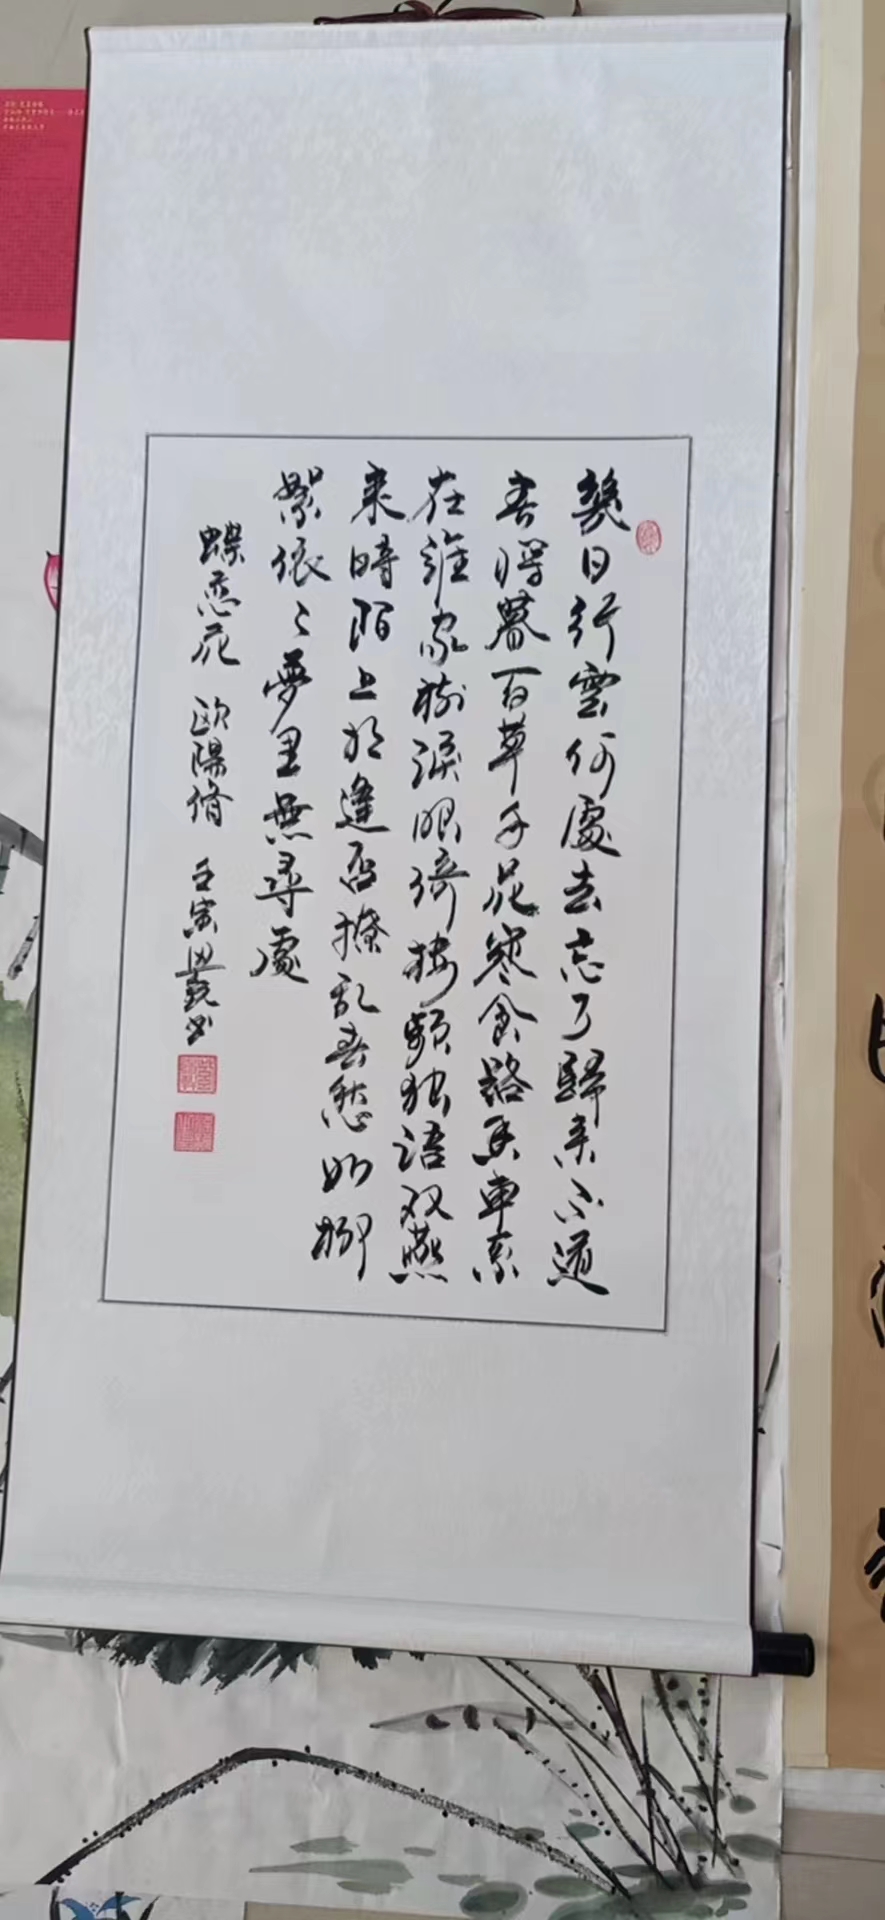 幾日行雲何處去忘了歸来不道
春將暮百草千花寒食路香車系
在誰家樹淚眼倚樓頻独語双燕
来時陌上相逢否撩乱春愁如柳
絮依〻夢里無尋處
蝶恋花 歐陽脩 壬寅